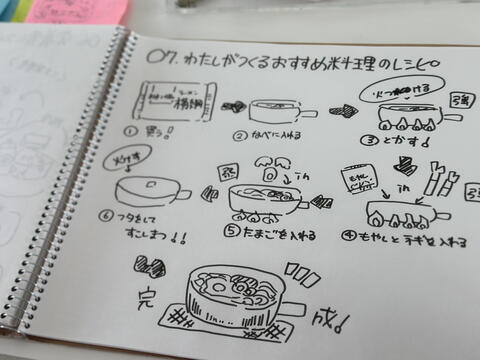 07. わたしがつくるおすすめ料理のレシピ
ラーメン
横綱
① 買う!
② なべに入れる
火つける
強
③ とかす!
もやし
in
強
④ もやしとネギを入れる
in
強
⑤ たまごを入れる
火けす
⑥ フタをして
すこしまつ!!
完成!